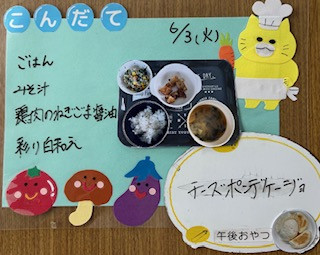 こんだて
6/3(火)
ごはん
みそ汁
鶏肉のねぎごま醤油
彩り白和え
チーズポンデケージョ
午後おやつ